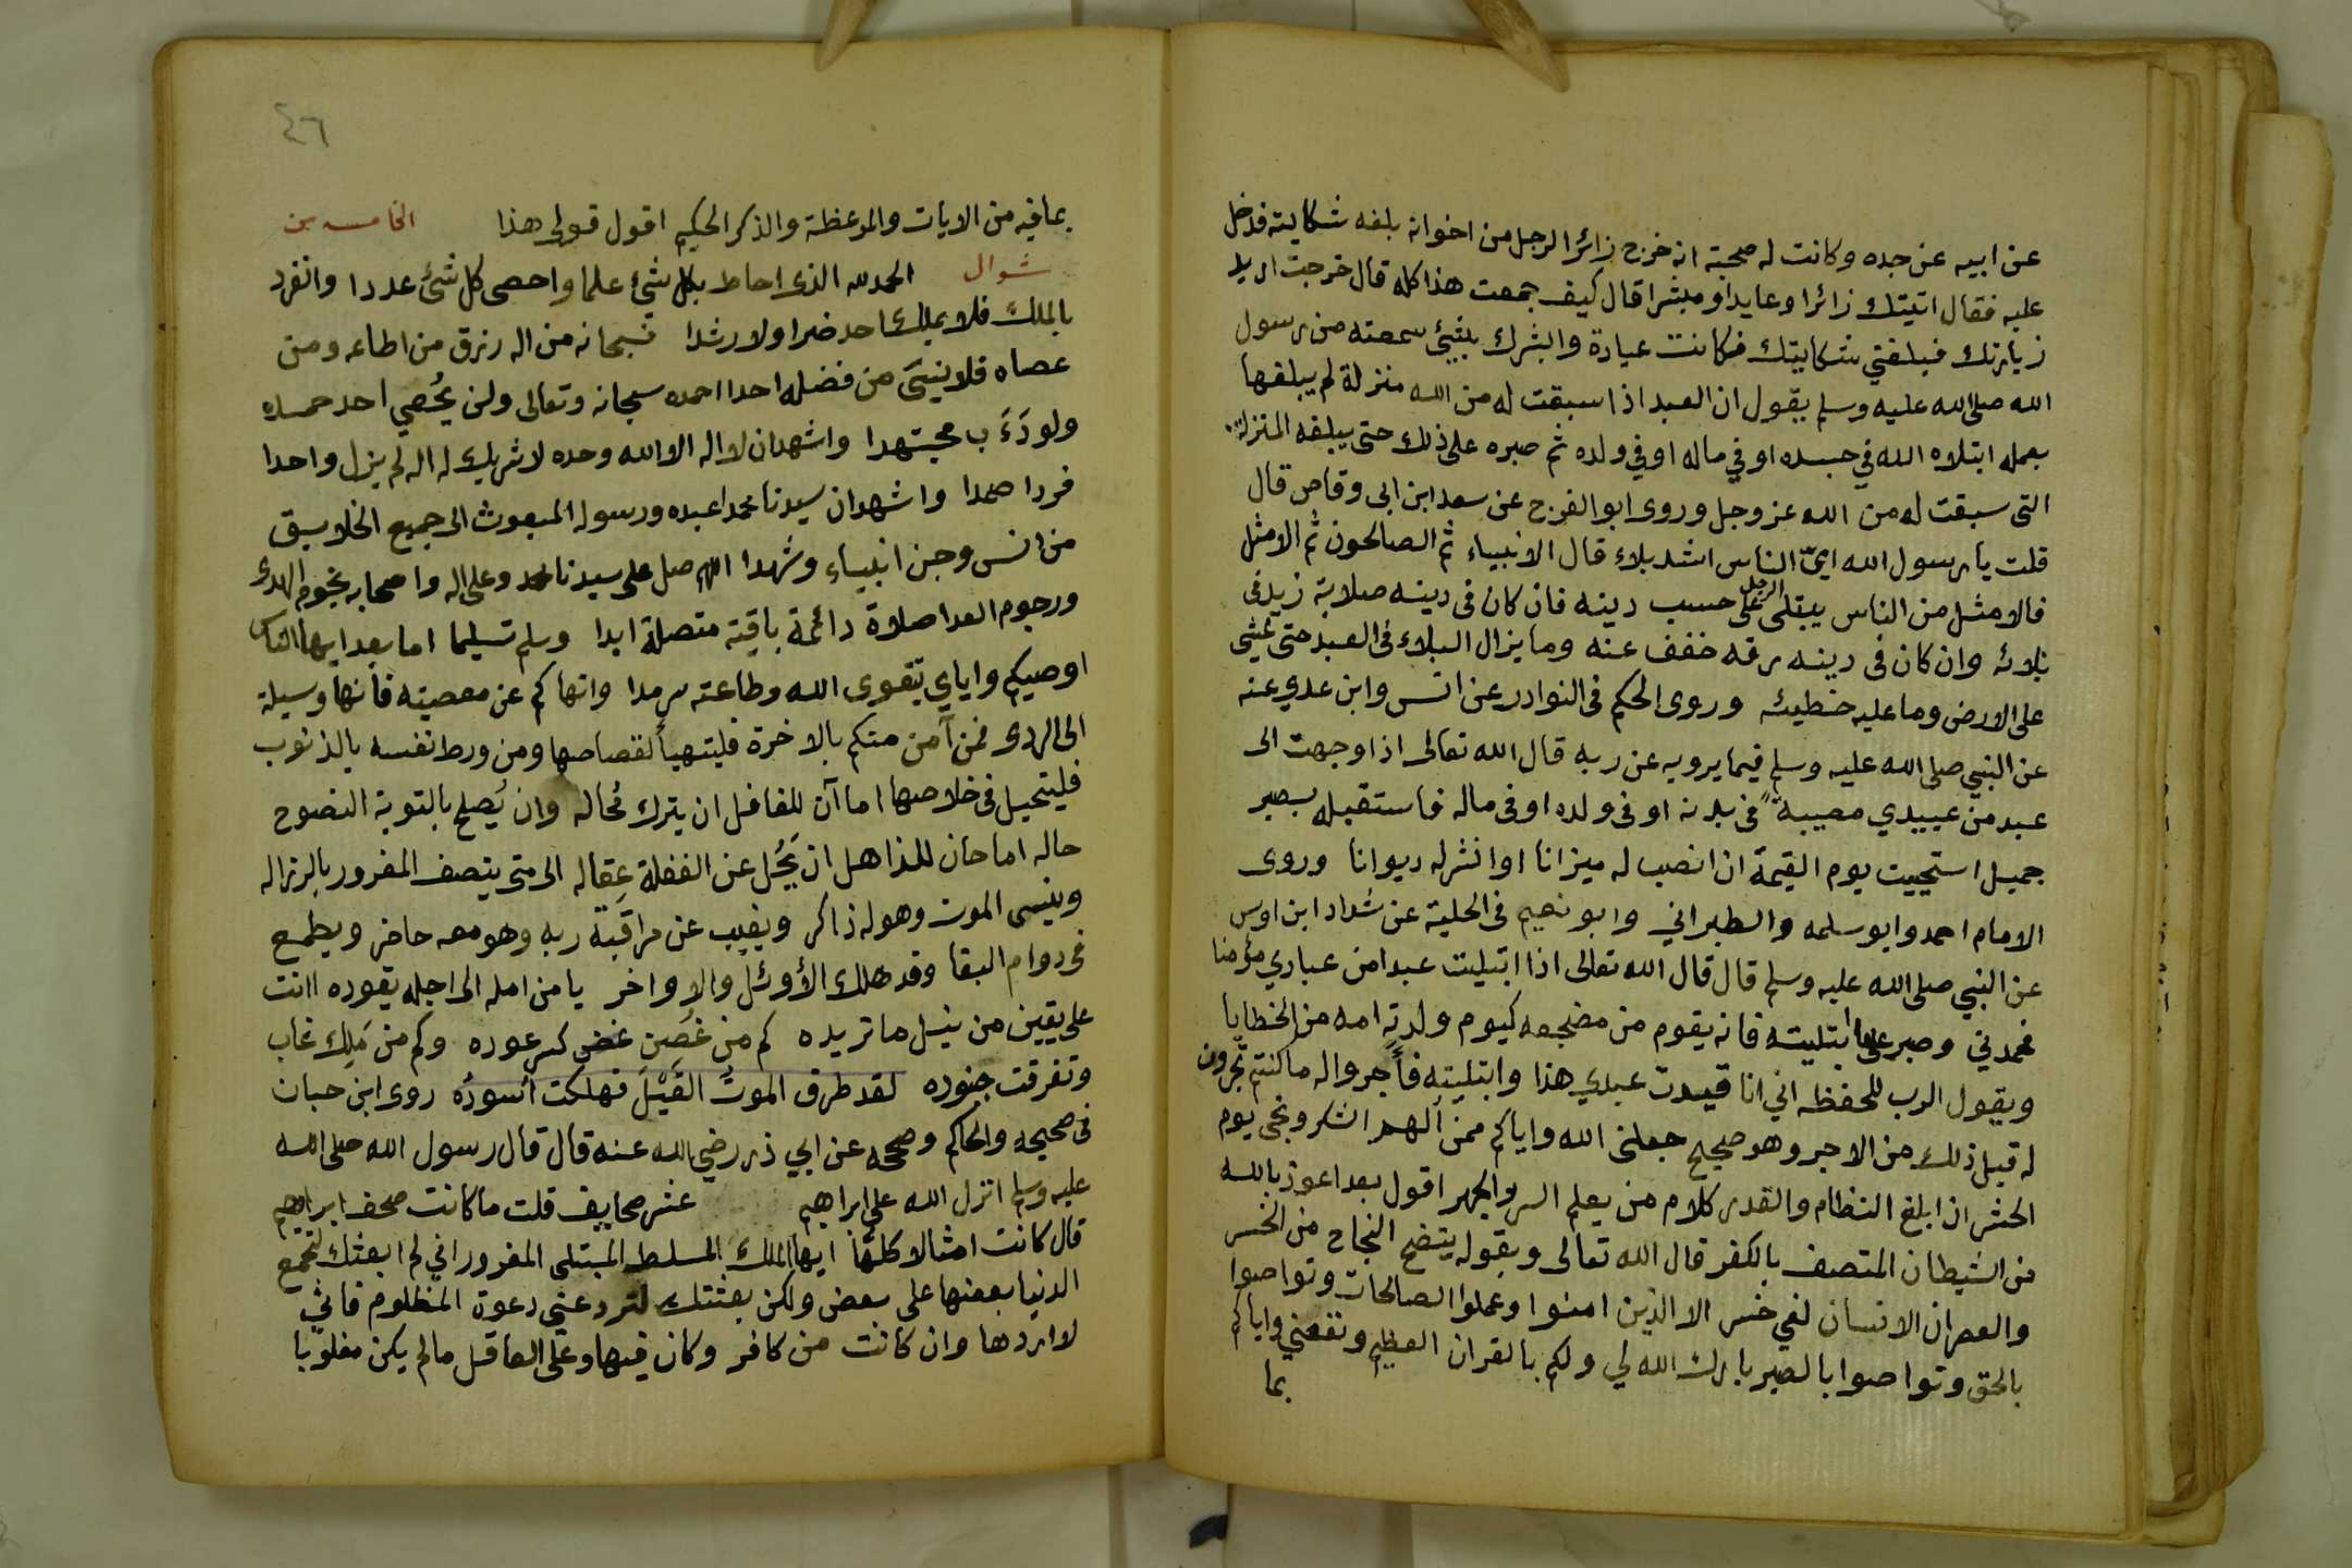 عن ابيه عن جده وكانت له صحبة انه خرج زائرا لرجل من اخوانه بلغه شكايته فدخل
عليه فقال اتيتك زائرا وعايدا ومبشرا قال كيف جمعت هذا كله قال خرجت اريد
زيارتك فبلغني شكايتك فكانت عيادة وابشرك بشيئ سمعته من رسول
الله صلى الله عليه وسلم يقول ان العبد اذا سبقت له من الله منزلة لم يبلغها
بعمله ابتلاه الله في جسده او في ماله او في ولده ثم صبره على ذلك حتى يبلغه المنزلة
التى سبقت له من الله عز وجل وروى ابو الفرج عن سعد ابن ابى وقاص قال
قلت يا رسول الله ايّ الناس اشد بلاء قال الانبياء ثم الصالحون ثم الامثل
فالامثل من الناس يبتلى الرجل على حسب دينه فان كان فى دينه صلابة زيد فى
بلائه وان كان فى دينه رقه خفف عنه وما يزال البلاء فى العبد حتى يمشى
على الارض وما عليه خطيئه وروى الحكيم فى النوادر عن انس وابن عدي عنه
عن النبي صلى الله عليه وسلم فيما يرويه عن ربه قال الله تعالى اذا وجهت الى
عبد من عبيدي مصيبةً فى بدنه او فى ولده او فى ماله فاستقبله بصبر
جميل استحييت يوم القيمة ان انصب له ميزانا او انشر له ديوانا وروى
الامام احمد وابو سلمه والطبراني وابو نعيم فى الحلية عن شداد ابن اوس
عن النبي صلى الله عليه وسلم قال قال الله تعالى اذا ابتليت عبدا من عبادي مؤمنا
فحمدني وصبر على ما ابتليته فانه يقوم من مضجعه كيوم ولدته امه من الخطايا
ويقول الرب للحفظه اني انا قيدت عبدي هذا وابتليته فأجروا له ما كنتم تجرون
له قبل ذلك من الاجر وهو صحيح جعلنى الله واياكم ممن ألهم الشكر ونجى يوم
الحشر ان ابلغ النظام والقدر كلام من يعلم السر والجهر اقول بعد اعوذ بالله
من الشيطان المتصف بالكفر قال الله تعالى وبقوله يتضح النجاح من الخسر
والعصر ان الانسان لفي خسر الا الذين امنوا وعملوا الصالحات وتواصوا
بالحق وتواصوا بالصبر بارك الله لي ولكم بالقران العظيم ونفعني واياكم
بما
٤٦
بما فيه من الايات والموعظة والذكر الحكيم اقول قولى هذا الخامسه من
شوال الحمد لله الذى احاط بكل شيئ علما واحصى كل شئ عددا وانفرد
بالملك فلا يملك احد ضرا ولا رشدا فسبحانه من اله رزق من اطاعه ومن
عصاه فلا ينسَى من فضله احدا احمده سبحانه وتعالى ولن يُحصي احد حمده
ولو دَءَب مجتهدا واشهد ان لا اله الا الله وحده لا شريك له اله لم يزل واحدا
فردا صمدا واشهد ان سيدنا محمدا عبده ورسوله المبعوث الى جميع الخلايق
من انس وجن انبياء وشهدا اللهم صل على سيدنا محمد وعلى اله واصحابه نجوم الهدى
ورجوم العدا صلاة دائمة باقية متصلة ابدا وسلم تسليما اما بعد ايها الناس
اوصيكم واياي بتقوى الله وطاعته سرمدا وانهاكم عن معصيته فانها وسيلة
الى الردى فمن آمن منكم بالاخرة فليتهيأ لقصاصها ومن ورط نفسه بالذنوب
فليتحيل فى خلاصها اما آن للغافل ان يترك مُحاله وان يُصلح بالتوبة النصوح
حاله اما حان للذاهل ان يَحُل عن الغفلة عِقاله الى متى يتصف المغرور بالرزاله
وينسى الموت وهو له ذاكر ويغيب عن مراقبة ربه وهو معه حاضر ويطمع
فى دوام البقا وقد هلك الأوئل والاواخر يا من امله الى اجله يقوده اانت
على يقين من نيل ما تريده كم من غُصن غض كسر عوده وكم من مَلِك غاب
وتفرقت جنوده لقد طرق الموتُ القَيْلَ فهلكت اسودُه روى ابن حبان
فى صحيحه والحاكم وصححه عن ابي ذر رضي الله عنه قال قال رسول الله صلى الله
عليه وسلم انزل الله على ابراهيم عشر صحايف قلت ما كانت صحف ابراهيم
قال كانت امثالا كلها ايها الملك المسلط المبتلى المغرور اني لم ابعثك لتجمع
الدنيا بعضها على بعض ولكن بعثتك لترد عني دعوة المظلوم فاني
لا اردها وان كانت من كافر وكان فيها وعلى العاقل ما لم يكن مغلوبا